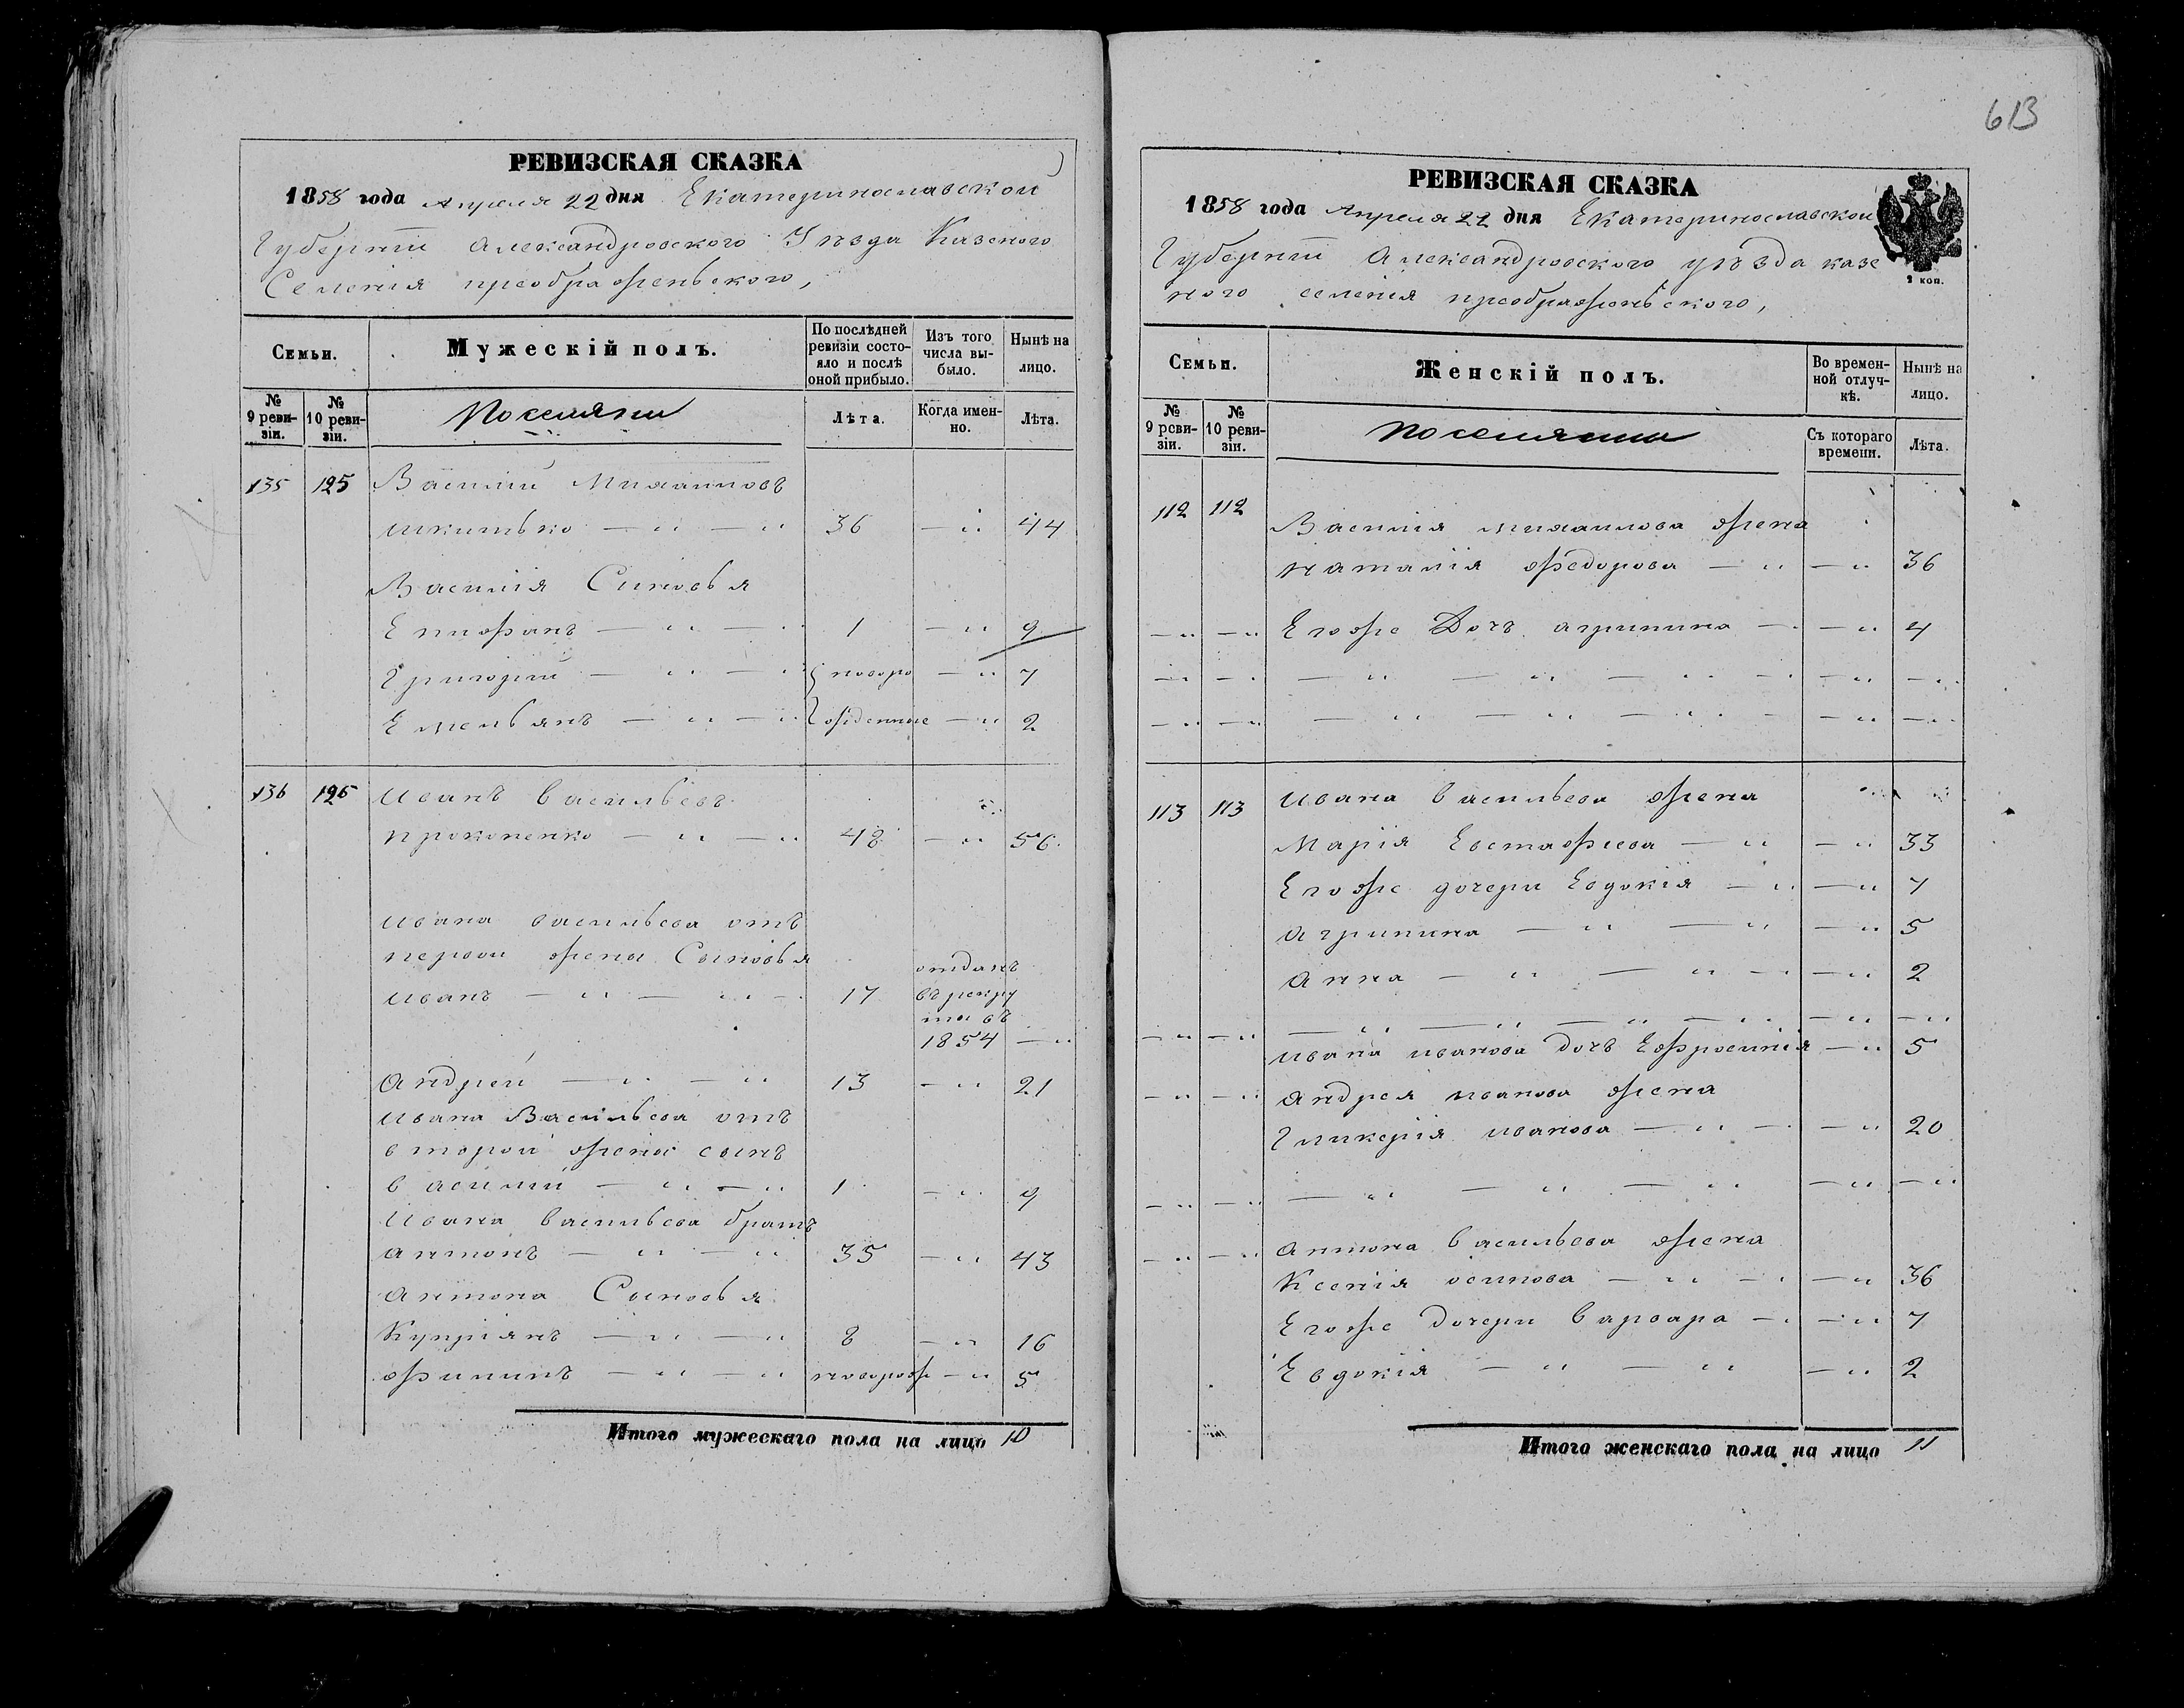 613
РЕВИЗСКАЯ СКАЗКА
1858 года Апреля 22 дня Екатеринославской
Губерніи Александровского Уѣзда Казеного
Селенія преображеньского,
Семьи. Мужескій полъ. По послѣдней ревизіи состояло и послѣ оной прибыло. Изъ того числа выбыло. Нынѣ на лицо.
№ 9 ревизіи. № 10 ревизіи. Поселяни Лѣта. Когда именно. Лѣта.
135 125 Василій Михаиловъ
— " — " 36 — " 44
Василія Синовья
Епифанъ — " — " 1 — " 9
Григорій — " — " новоро — " 7
Емельянъ — " — " жденные — " 2
136 126 Иванъ Васильевъ
Прокопенко — " — " 48 — " 56
Ивана васильева отъ
первой жены Сыновья
Иванъ — " — " — 17 отданъ
въ рекру
ты въ
1854 — "
Андрей — " — " 13 — " 21
Ивана Васильева отъ
второй жены сынъ
Василій — " — " 1 — " 9
Ивана Васильева братъ
Антонъ — " — " 35 — " 43
Антона Сыновья
Купріянъ — " — " 8 — " 16
Филипъ — " — " новорож — " 5
Итого мужескаго пола на лицо 10
РЕВИЗСКАЯ СКАЗКА
1858 года Апреля 22 дня Екатеринославской
Губерніи Александровского уѣзда казе
ного селенія преображеньского,
2 коп.
Семьи. Женскій полъ. Во временной отлучкѣ. Нынѣ на лицо.
№ 9 ревизіи. № 10 ревизіи. Поселянки Съ котораго времени. Лѣта.
112 112 Василія михаилова жена
Наталія Федорова — " — " 36
— " — " Егоже Дочъ агрипина — " — " 4
— " — " — " — " — " — " — " — "
— " — " — " — " — " — — " — "
113 113 Ивана Васильева жена
Марія Евстафиева — " — " 33
Егоже дочери Евдокія — " — " 7
Агрипина — " — " — " 5
Анна — " — " — " — " 2
— " — " — " — " — " — " — " — "
Ивана иванова дочъ Ефросинія — " 5
— " — " Андрея иванова жена
Гликерія иванова — " — " — " 20
— " — " — " — " — " — " — "
— " — " Антона Васильева жена
Ксенія осипова — " — " — " 36
Егоже дочери Варвара — " — " 7
Евдокія — " — " — " 2
Итого женскаго пола на лицо 11